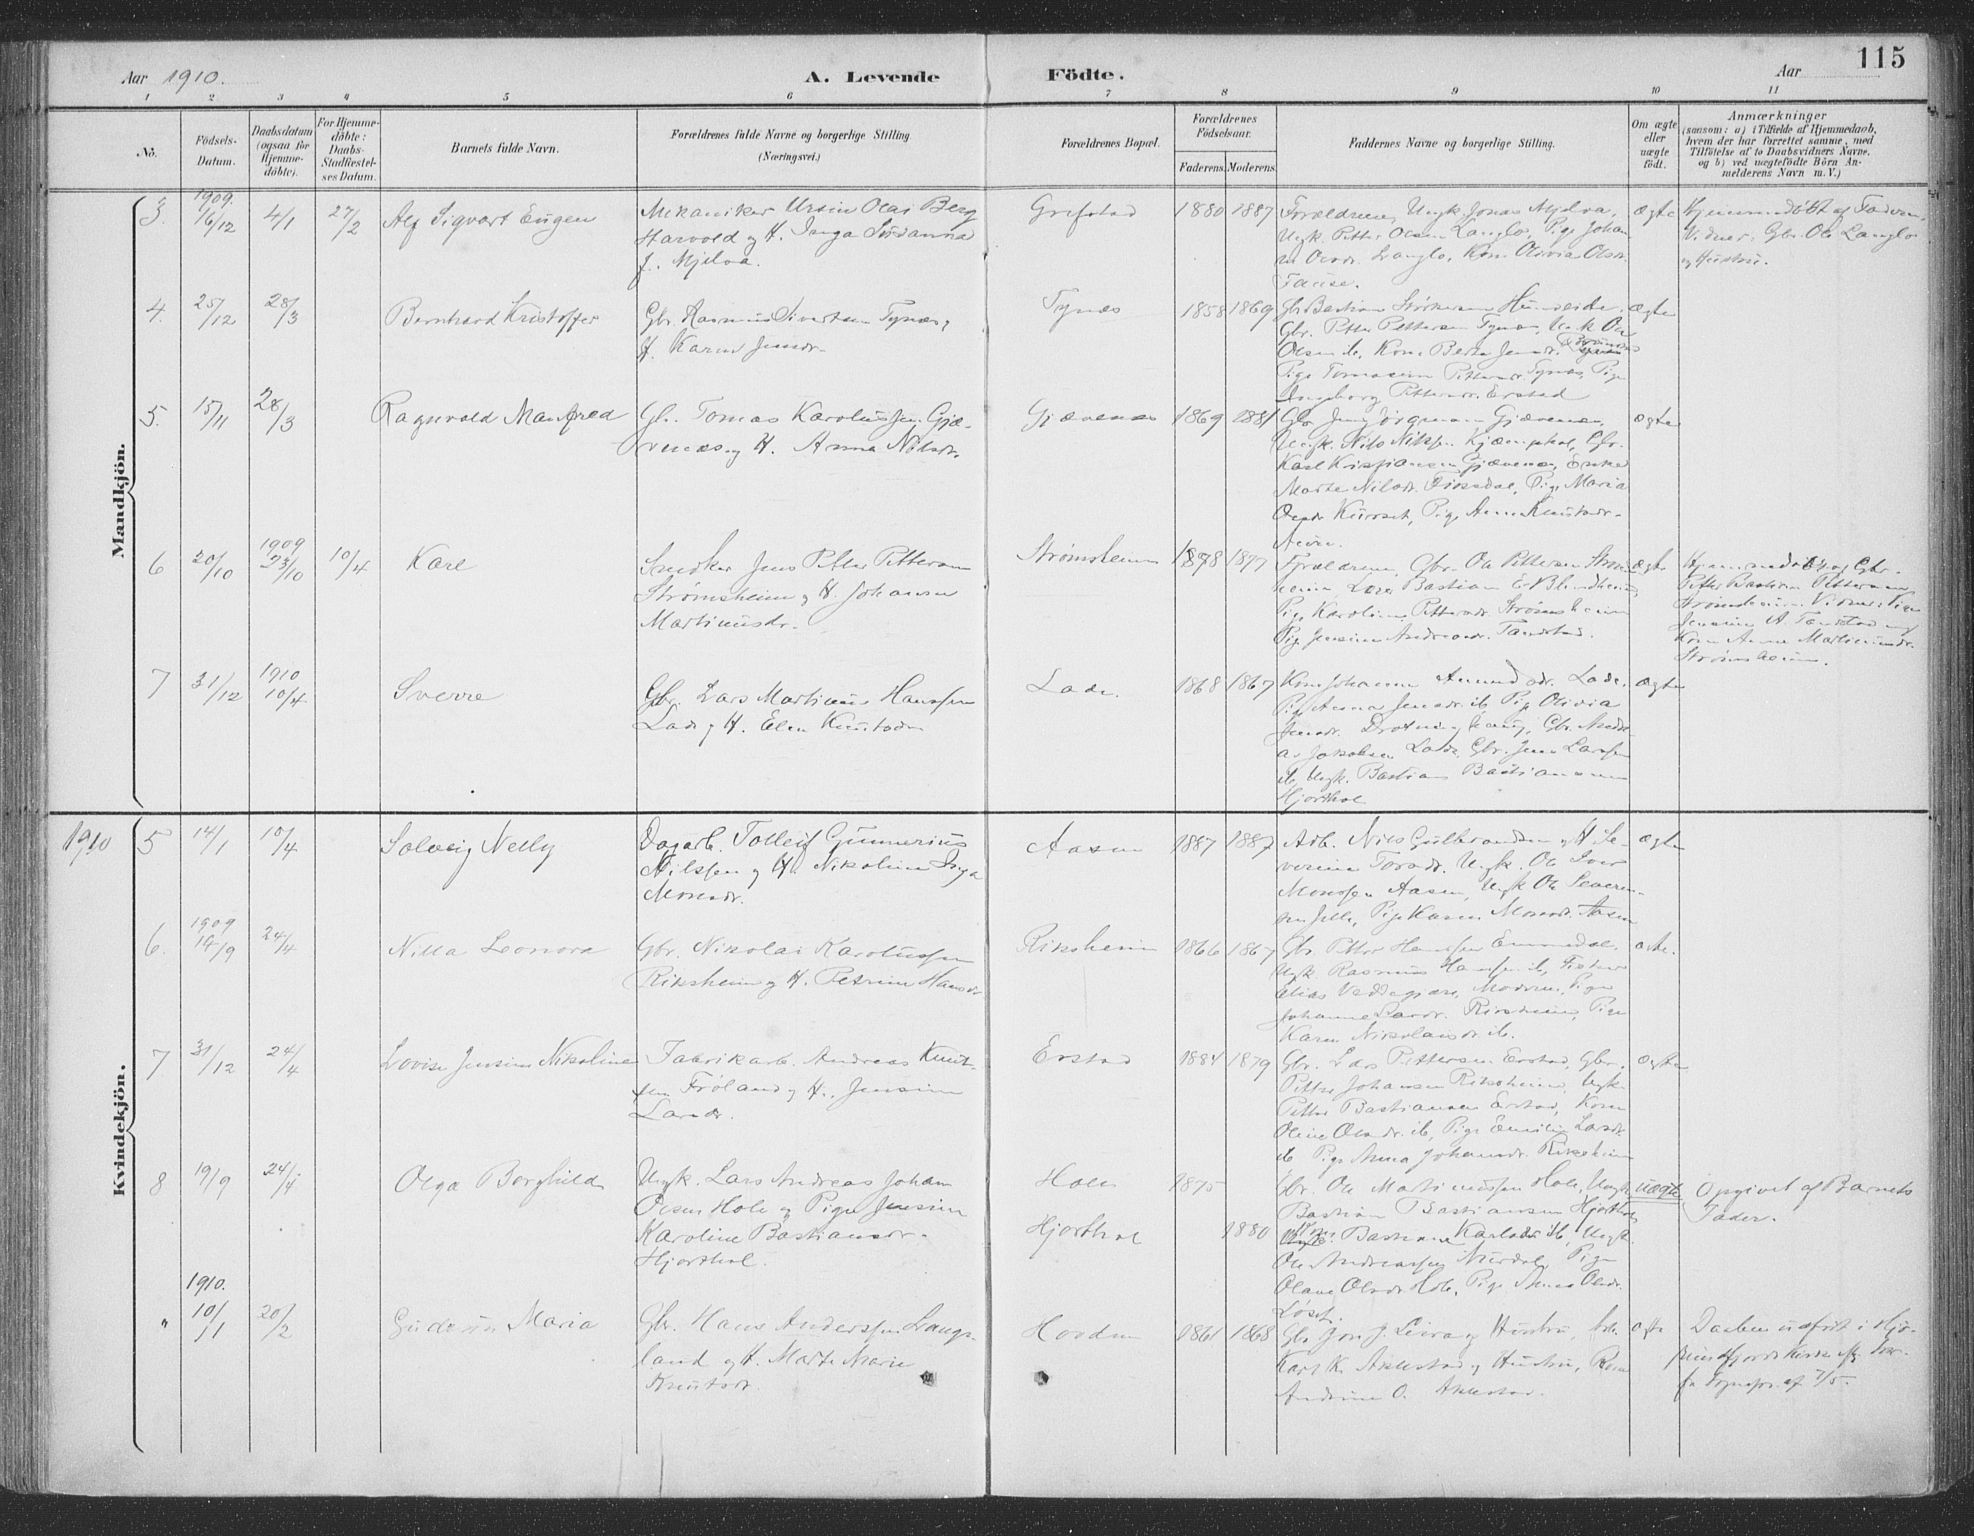 115
Aar 1910.
A. Levende Födte.
Aar
1 2 3 4 5 6 7 8 9 10 11
No.
Födsels-
Datum.
Daabsdatum
(ogsaa for
Hjemme-
döbte).
For Hjemme-
döbte:
Daabs-
Stadfæstel-
ses Datum.
Barnets fulde Navn.
Forældrenes fulde Navne og borgerlige Stilling.
(Næringsvei.)
Forældrenes Bopæl.
Forældrenes
Födselsaar.
Faderens. Moderens.
Faddernes Navne og borgerlige Stilling.
Om ægte
eller
uægte
födt.
Anmærkninger
(saasom: a) i Tilfælde af Hjemmedaab,
hvem der har forrettet samme, med
Tilföielse af to Daabsvidners Navne,
og b) ved uægtefödte Börn An-
melderens Navn m. V.)
Mandkjön.
3.
1909.
16/12
4/1
27/2
Alf Sigvart Eugen
Mekaniker Ursin Olai Berg
Harvold og H. Inga Susanna
f. Mjelva.
Grefstad
1880 1887
Forældrene, Ungk. Jonas Mjelva,
Ungk. Petter Olsen Langlo, Pige Johan
Olsdr. Langlo, Kone Olivia Olsdr.
ægte
Hjemmedöbt af Faderen.
Vidner: Gbr. Ole Langlo
og Hustru.
4.
25/12
28/3
Bernhard Kristoffer
Gbr. Rasmus Sivertsen Tynes,
H. Karen Jensdr.
Tynes
1858 1869
Gbr. Bastian Hundeide,
Gbr. Petter Pettersen Tynes, Ungk. Ole
Olsen ib, Kone Berte Jensdr.
Pige Tomasine Pettersdr. Tynes, Pige
Ingeborg Pettersdr. Erstad
ægte
5.
15/11
28/3
Ragnvald Manfred
Gbr. Tomas Karolus Jens. Gjæ-
venes og H. Anna Nilsdr.
Gjævenes
1869 1881
Gbr. Jens Jörgensen Gjævenes,
Ungk. Nils Nilsen Gbr.
Karl Kristiansen Gjævenes, Enke
Marte Nilsdr. Pige Maria
Olsdr. Pige Anne Knutsdr.
ægte
6
20/10
1909
23/10
10/4
Kåre
Snedker Jens Petter Pettersen
Strømsheim og H. Johanne
Martinusdr.
Strømsheim
1878 1877
Forældrene, Gbr. Ole Pettersen Strøms-
heim, Lærer Bastian E. Blindheim,
Pige Karoline Pettersdr. Strømsheim
Pige Jensine Andreasdr. Tandstad.
ægte
Hjemmedöbt af Gbr.
Petter Bastian Pettersen
Strømsheim. Vidner: Pige
Jensine A. Tandstad og
Kone Anne Martinusdr.
Strømsheim.
7
31/12
1910
10/4
Sverre
Gbr. Lars Martinus Hanssen
Lade og H. Elen Knutsdr.
Lade.
1868 1867
Kone Johanne Amundsdr. Lade,
Pige Anna Jensdr. ib, Pige Olivia
Jensdr. Gbr.
Jakobsen Lade, Gbr. Jens Larsen
ib, Ungk. Bastian Bastiansen
Hjorthol
ægte
Kvindekjön.
1910
5
14/1
10/4
Solveig Nelly
Dagarb. Tolleif Gunnerius
Nilssen og H. Nikoline Inga
Monsdr.
Aasen
1887 1887
Arb. Nils Gulbrandsen og H. Se-
verine Ungk. Ole Iver
Monssen Aasen, Ungk Ole Severin-
sen Pige Karen Monsdr. Aasen
ægte
6.
1909
14/9
24/4
Nilla Leonora
Gbr. Nikolai Karolussen
Riksheim og H. Petrine Hansdr.
Riksheim
1866 1867
Gbr. Petter Hanssen Emmedal,
Ungk. Rasmus Hanssen ib, Fisker
Elias Veddegjære, Moderen, Pige
Johanne Larsdr. Riksheim, Pige
Karen Nikolaisdr. ib.
7
31/12
24/4
Lovise Jensine Nikoline
Fabrikarb. Andreas Knut-
sen Fröland og H. Jensine
Larsdr.
Erstad
1884 1879
Gbr. Lars Pettersen Erstad, Gbr.
Petter Johansen Riksheim, Ungk.
Petter Bastiansen Erstad, Kone
Oline Olsdr. ib, Pige Emilie Larsdr.
ib, Pige Anna Johansdr. Riksheim
ægte
8
19/9
24/4
Olga Borghild
Ungk. Lars Andreas Johan
Olsen Hole og Pige Jensine
Karoline Bastiansdr.
Hjorthol.
Hole
Hjorthol
1875
1880
Gbr. Ole Martinussen Hole, Ungk.
Bastian Bastiansen Hjorthol,
Kone Bastiane Karlsdr. ib, Ungk.
Ole Andreassen Pige
Olave Olsdr. Hole, Pige Anna Olsdr.
Løset.
uægte
Opgivet af Barnets
Fader.
"
1910.
10/1
20/2
Gudrun Maria
Gbr. Hans Anderssen Langs-
land og H. Marte Marie
Knutsdr.
Hovden
1861 1868
Gbr. Jon J. Leira og Hustru, Arb.
Karl K. Aklestad og Hustru, Kone
Andrine O. Aklestad.
ægte
Daaben udført i Hjö-
rundfjords Kirke